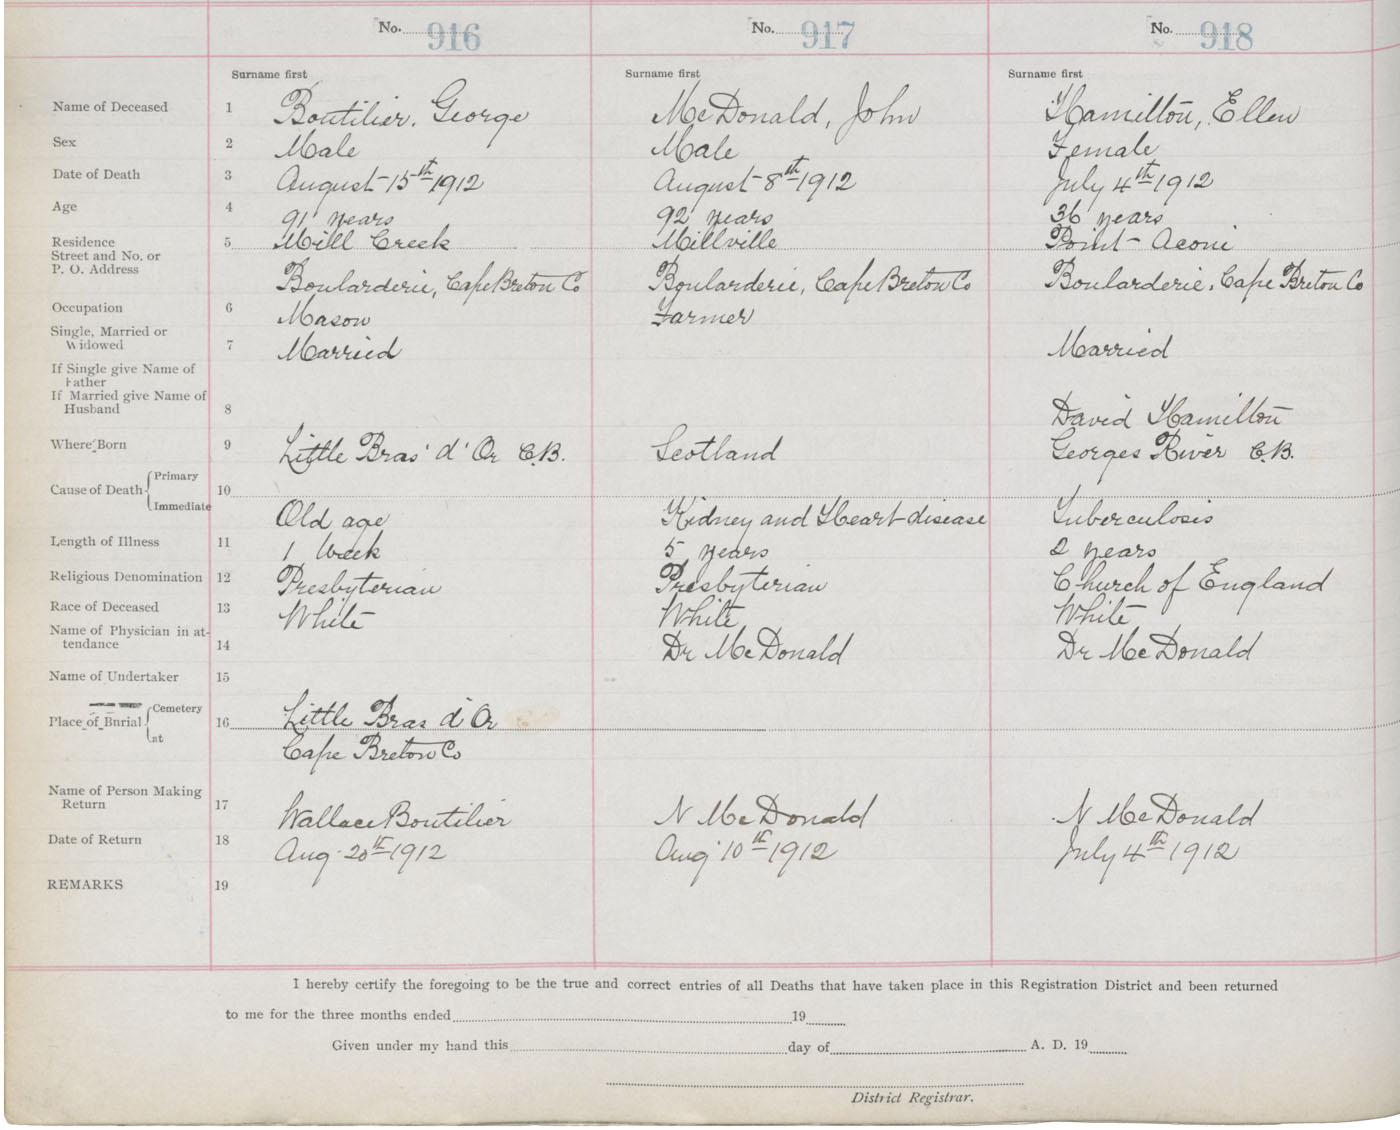 No. 916 No. 917 No. 918
Surname first Surname first Surname first
Name of Deceased 1 Boutilier, George McDonald, John Hamilton, Ellen
Sex 2 Male Male Female
Date of Death 3 August 15th 1912 August 8th 1912 July 4th 1912
Age 4 91 years 92 years 36 years
Residence 5 Mill Creek Millville Point Aconi
Street and No. or
P. O. Address Boularderie, Cape Breton Co Boularderie, Cape Breton Co Boularderie, Cape Breton Co
Occupation 6 Mason Farmer
Single, Married or
Widowed 7 Married Married
If Single give Name of
Father
If Married give Name of
Husband 8 David Hamilton
Where Born 9 Little Bras d' Or C.B. Scotland Georges River C.B.
Primary
Cause of Death 10
Immediate Old age Kidney and Heart disease Tuberculosis
Length of Illness 11 1 Week 5 years 2 years
Religious Denomination 12 Presbyterian Presbyterian Church of England
Race of Deceased 13 White White White
Name of Physician in at-
tendance 14 Dr McDonald Dr McDonald
Name of Undertaker 15
Cemetery
Place of Burial 16 Little Bras d'Or
at Cape Breton Co
Name of Person Making
Return 17 Wallace Boutilier N McDonald N McDonald
Date of Return 18 Aug 20th 1912 Aug 10th 1912 July 4th 1912
REMARKS 19
I hereby certify the foregoing to be the true and correct entries of all Deaths that have taken place in this Registration District and been returned
to me for the three months ended 19
Given under my hand this day of A. D. 19
District Registrar.